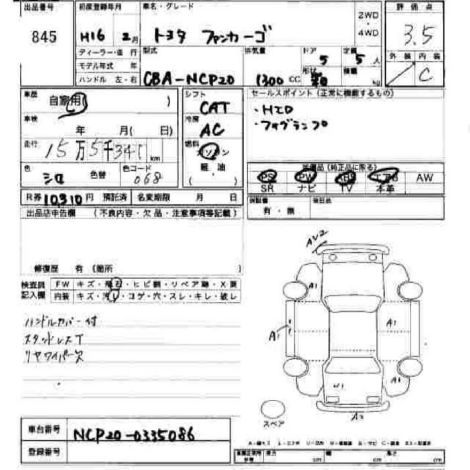 出品番号
845
初度登録年月
H16 年 2 月
ディーラー・並行
モデル年式 年
ハンドル 左・右
車名・グレード
トヨタ ファンカーゴ
2WD
4WD
型式
CBA-NCP20
排気量
1300 CC
ドア
5
形状
定員
5 人
積載
評価点
3.5
外装 内装
C
車歴
自家用
車検
年 月( 日)
走行
15万5千341 km
色
シロ
色替
色コード
068
R券 10310 円 預託済
名変期限 月 日
シフト
CAT
冷房
AC
燃料
ガソリン
軽油
セールスポイント(正常に機能するもの)
・HID
・フォグランプ
装備品(純正品に限る)
PS PW エアB AW
SR ナビ TV 本革
保証書
有・無
出品店申告欄 (不良内容・欠品・注意事項等記載)
修復歴 有(箇所
検査員記入欄
FW キズ・飛石・ヒビ割・リペア跡・X要
内装 キズ・汚れ・コゲ・穴・スレ・キレ・破レ
ハンドルカバー付
スタッドレスT
リヤワイパー欠
AU2
A1
A1
A1
U1
A2
スペア
車台番号
NCP20-0335086
登録番号